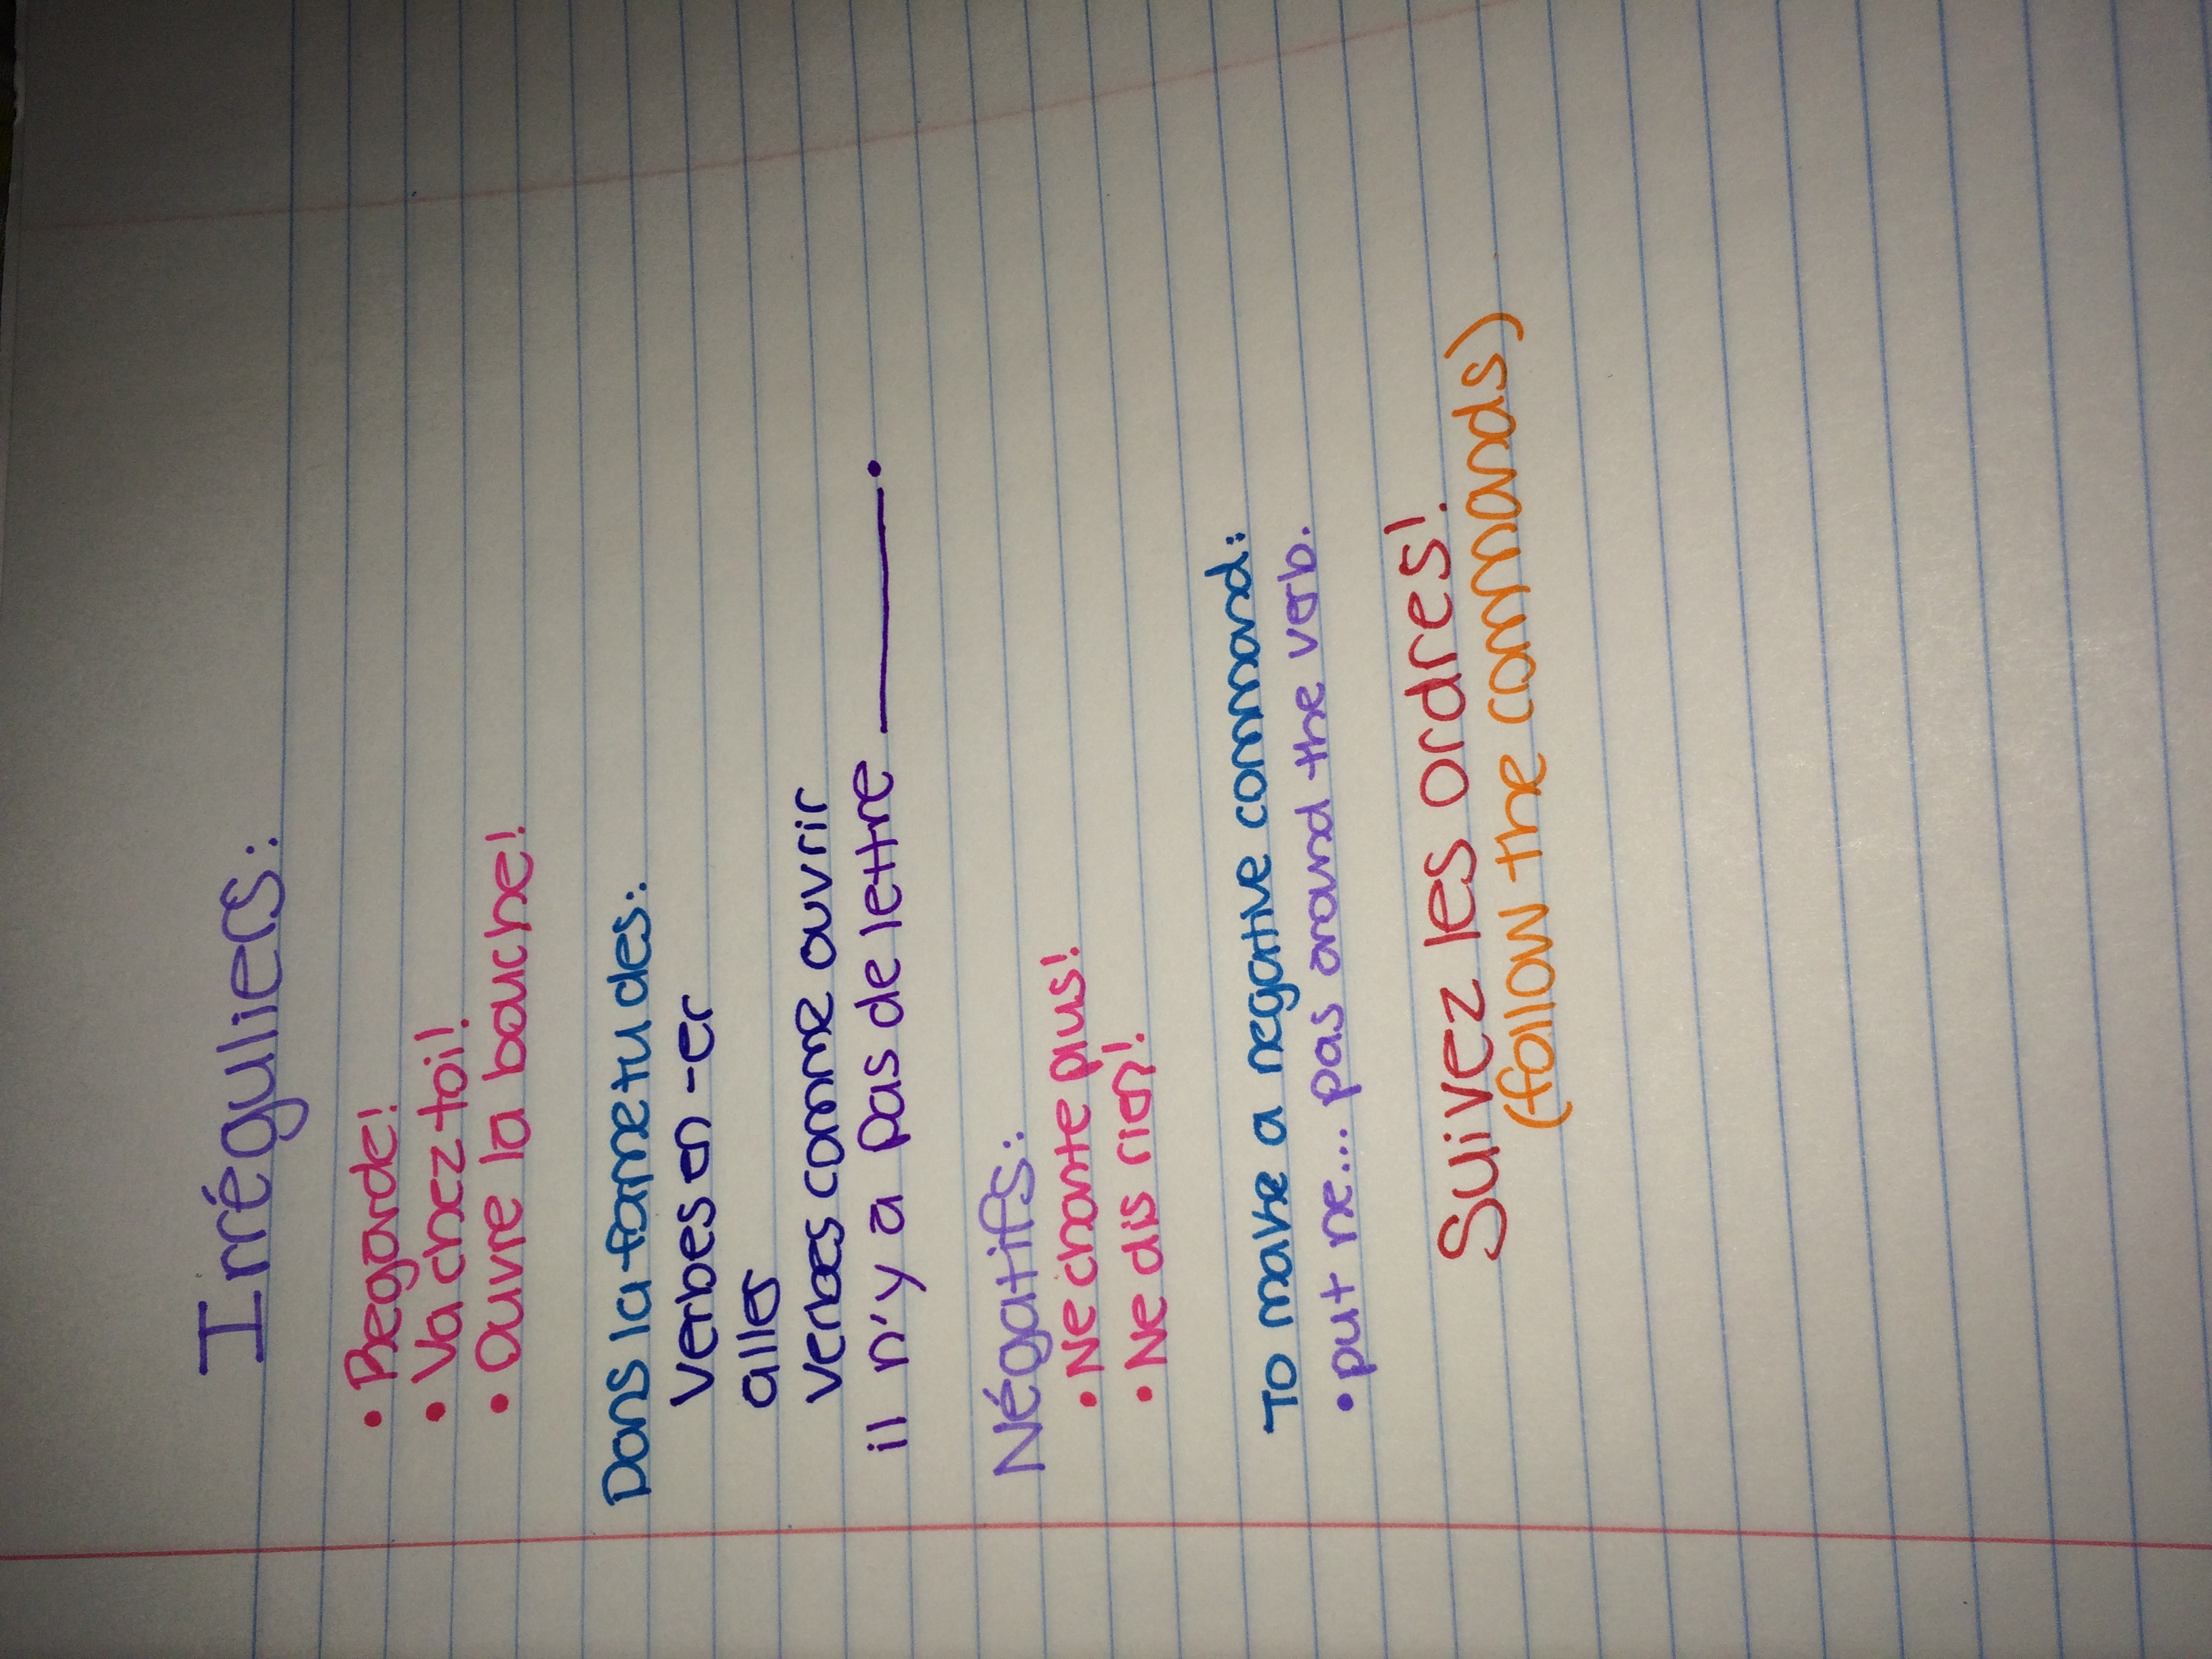 Irréguliers:
• Regarde!
• Va chez toi!
• Ouvre la bouche!
Dans la fame tu des:
verbes en -er
aller
verbes comme ouvrir
il n'y a pas de lettre ________.
Négatifs:
• Ne chante plus!
• Ne dis rien!
To make a negative command:
• put ne... pas around the verb.
Suivez les ordres!
(follow the commands)